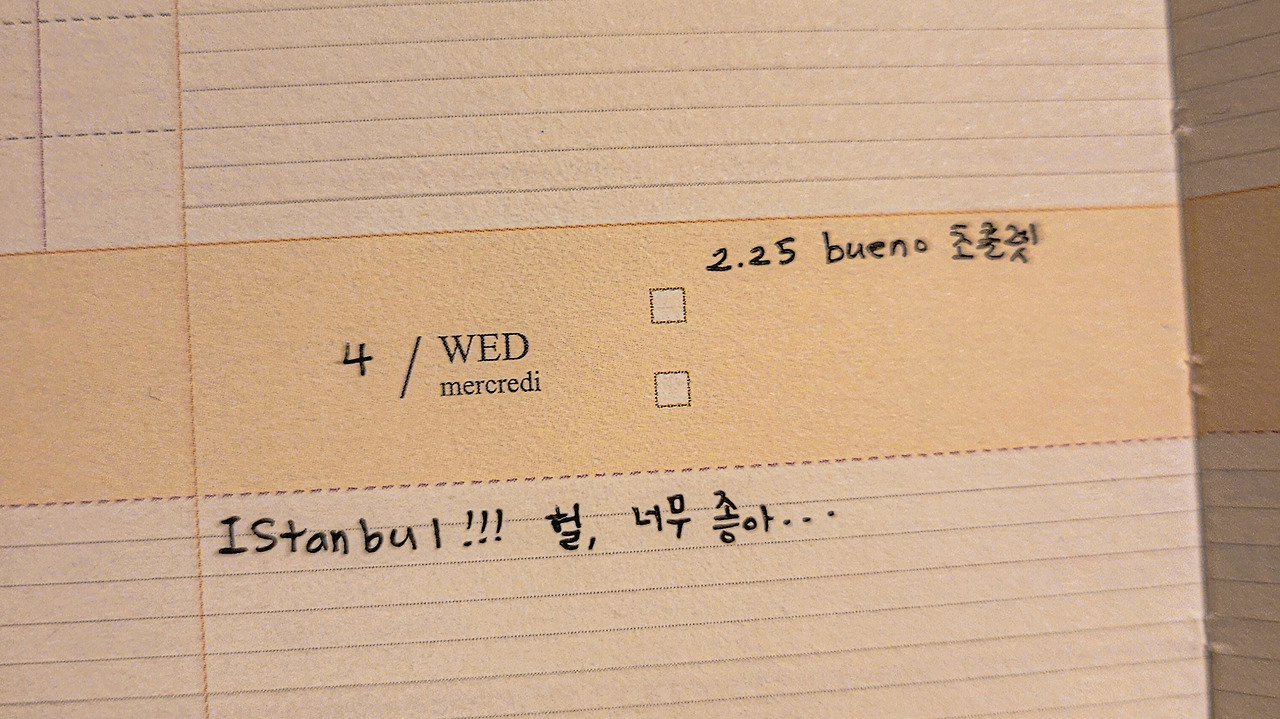 2.25 bueno 초콜렛
4 / WED
mercredi
IStanbul!!! 헐, 너무 좋아...